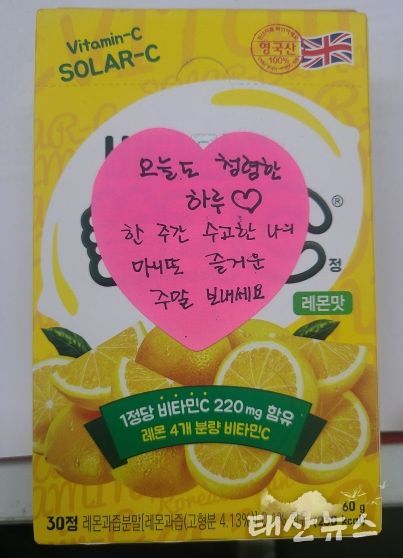 Vitamin-C
SOLAR-C
영국산
100%
오늘도 청렴한
하루♡
한 주간 수고한 나의
마니또 즐거운
주말 보내세요
®
정
레몬맛
1정당 비타민C 220mg 함유
레몬 4개 분량 비타민C
60 g
30정 레몬과즙분말[레몬과즙(고형분 4.13%
태산뉴스